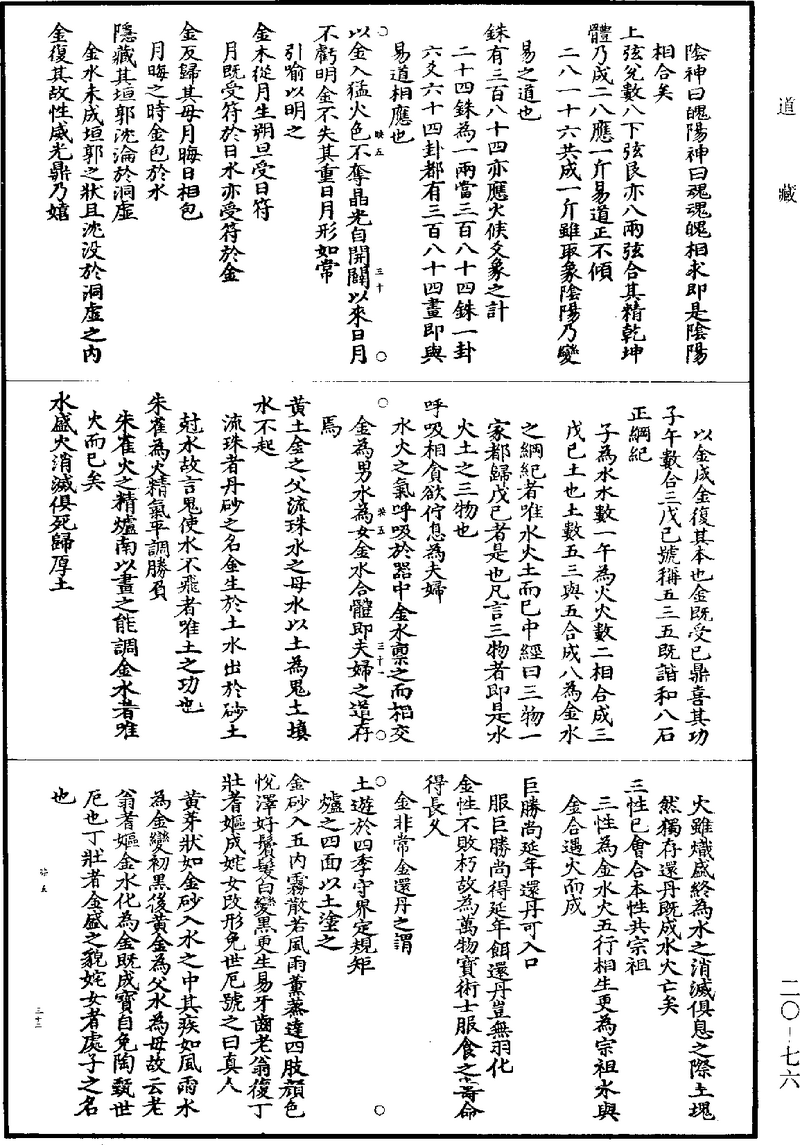 道藏
陰神曰魄陽神曰魂魂魄相求即是陰陽
相合矣
上弦兌數八下弦艮亦八兩弦合其精乾坤
體乃成二八應一斤易道正不傾
二八一十六共成一斤雖取象陰陽乃變
易之道也
銖有三百八十四亦應火候爻象之計
二十四銖為一兩當三百八十四銖一卦
六爻六十四卦都有三百八十四畫即與
易道相應也
以金入猛火色不奪晶光自開闢以來日月
不虧明金不失其重日月形如常
引喻以明之
金木從月生朔旦受日符
月既受符於日水亦受符於金
金反歸其母月晦日相包
月晦之時金包於水
隱藏其垣郭沈淪於洞虛
金水未成垣郭之狀且沈沒於洞虛之內
金復其故性威光鼎乃嬉
以金成金復其本也金既受已鼎喜其功
子午數合三戊己號稱五三五既諧和八石
正綱紀
子為水水數一午為火火數二相合成三
戊己土也土數五三與五合成八為金水
之綱紀者唯水火土而已中經曰三物一
家都歸戊己者是也凡言三物者即是水
火土之三物也
呼吸相貪欲佇息為夫婦
水火之氣呼吸於器中金水稟之而相交
金為男水為女金水合體即夫婦之道存
焉
黃土金之父流珠水之母水以土為鬼土填
水不起
流珠者丹砂之名金生於土水出於砂土
尅水故言鬼使水不飛者唯土之功也
朱雀為火精氣平調勝負
朱雀火之精爐南以畫之能調金水者唯
火而已矣
水盛火消滅俱死歸厚土
火雖熾盛終為水之消滅俱息之際土塊
然獨存還丹既成水火亡矣
三性已會合本性共宗祖
三性為金水火五行相生更為宗祖水與
金合遇火而成
巨勝尚延年還丹可入口
服巨勝尚得延年餌還丹豈無羽化
金性不敗朽故為萬物寶術士服食之壽命
得長久
金非常金還丹之謂
土遊於四季守界定規矩
爐之四面以土塗之
金砂入五內霧散若風雨薰蒸達四肢顏色
悅澤好鬢髮白變黑更生易牙齒老翁復丁
壯耆嫗成姹女改形免世厄號之曰真人
黃芽狀如金砂入水之中其疾如風雨水
為金變初黑後黃金為父水為母故云老
翁耆嫗金水化為金既成寶自免陶甄世
厄也丁壯者金盛之貌姹女者處子之名
也
三十
三十一
三十二
二〇-七六